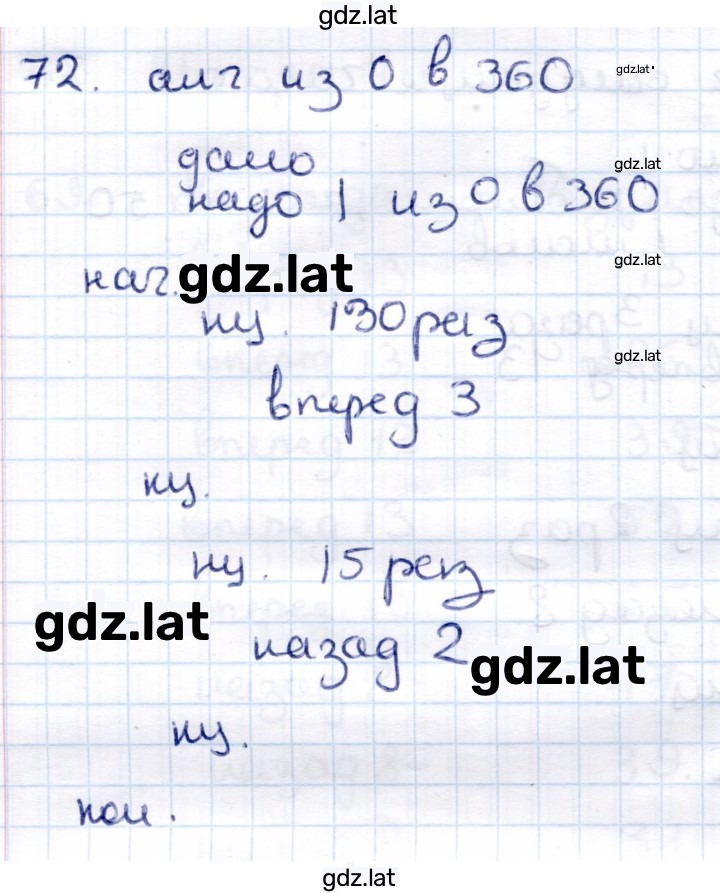 gdz.lat
72. алг из 0 в 360 gdz.lat
дано gdz.lat
надо | из 0 в 360
нач. gdz.lat gdz.lat
нц. 130 раз
gdz.lat
вперед 3
кц.
нц. 15 раз
gdz.lat
назад 2 gdz.lat
кц.
кон.
gdz.lat